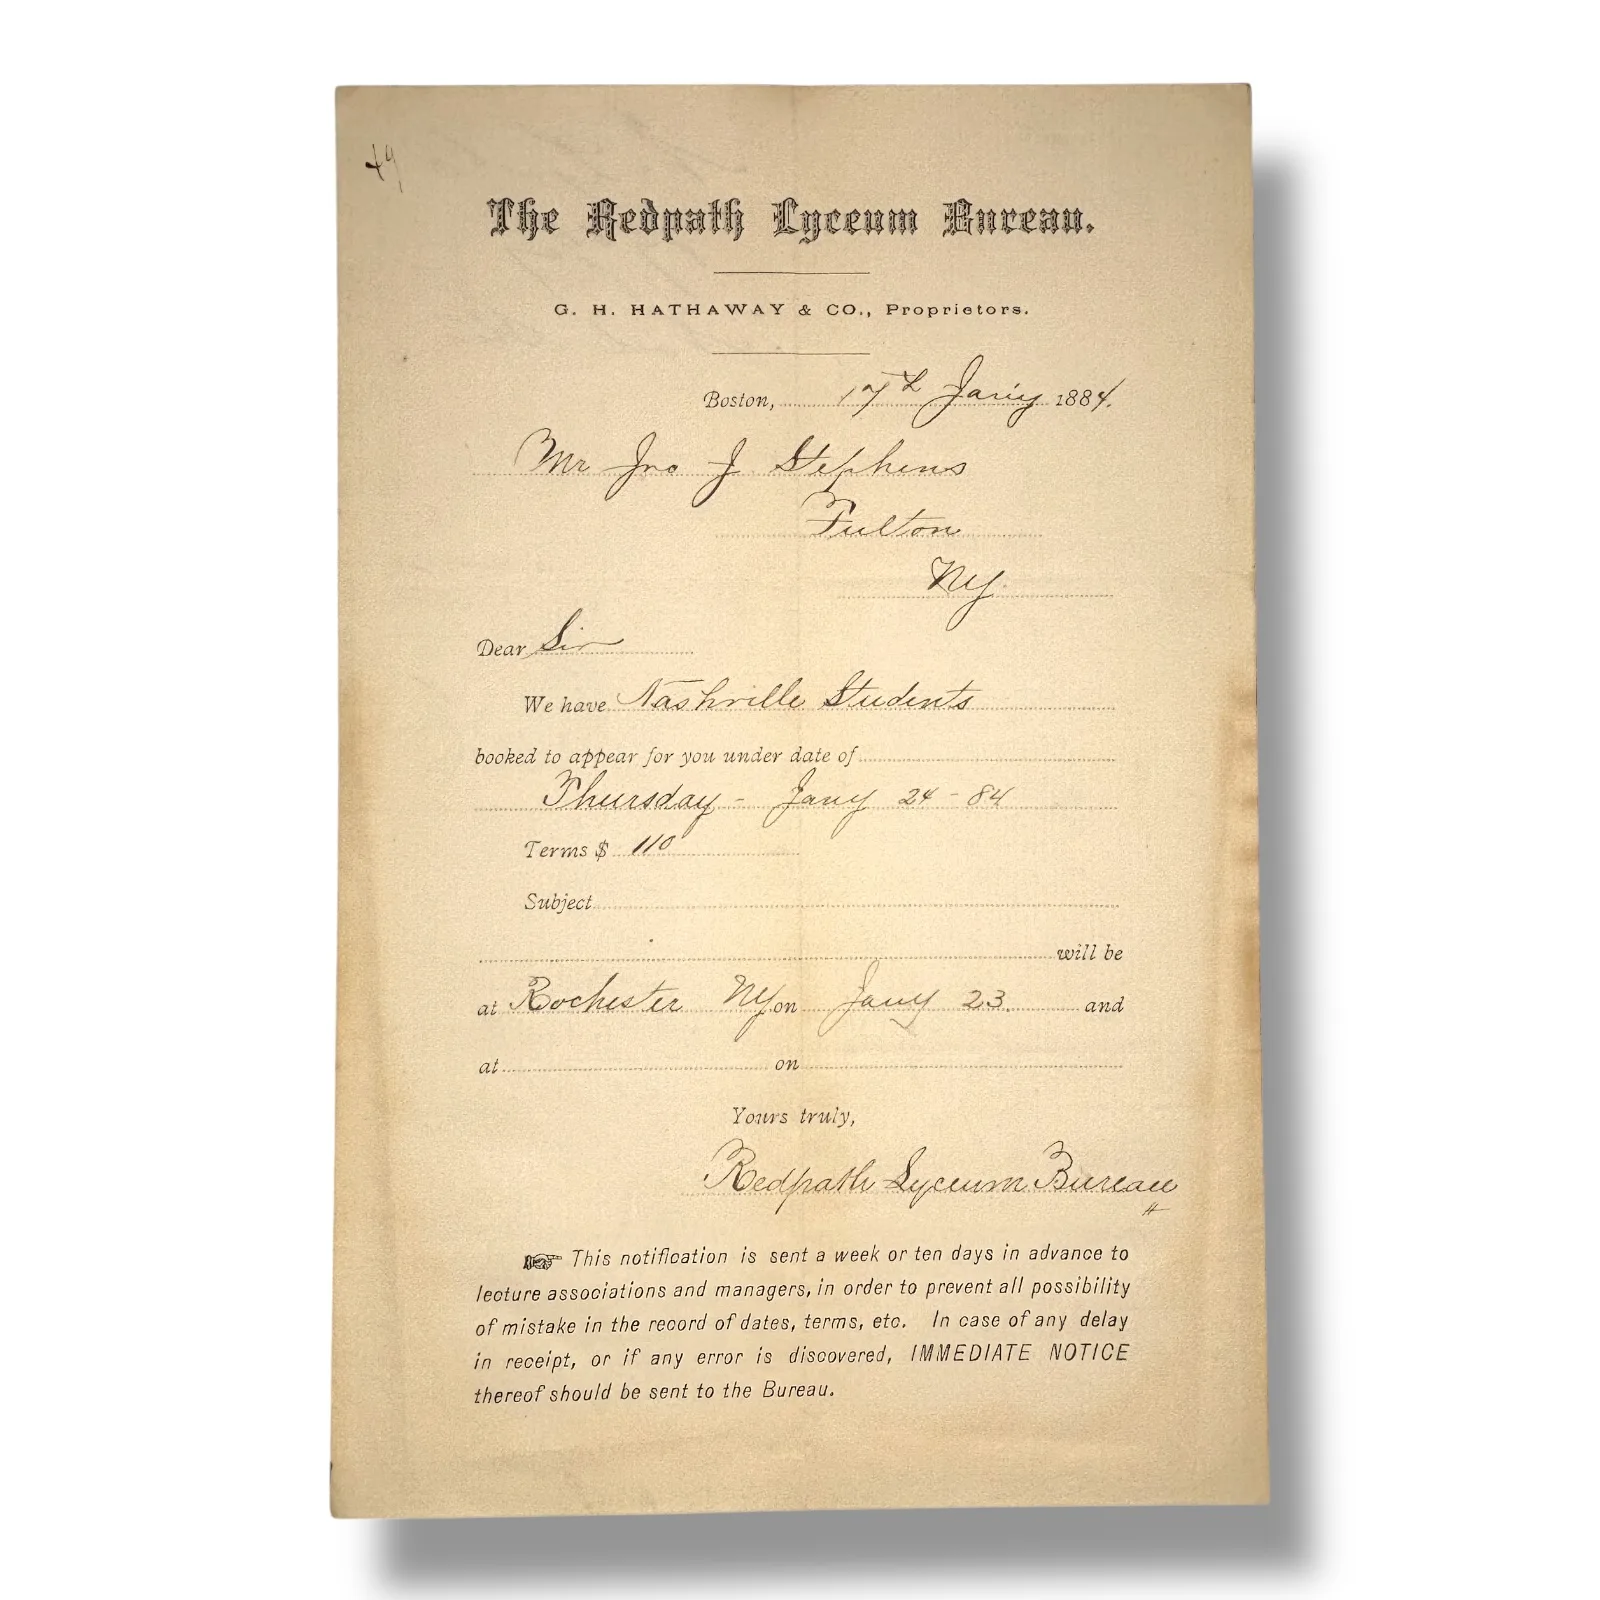 49
The Redpath Lyceum Bureau.
G. H. HATHAWAY & CO., Proprietors.
Boston, 17th Jan'y 1884.
Mr Jno J Stephens
Fulton
NY.
Dear Sir
We have Nashville Students
booked to appear for you under date of
Thursday - Jany 24 - 84
Terms $ 110
Subject
will be
at Rochester NY on Jany 23. and
at on
Yours truly,
Redpath Lyceum Bureau
H
☞ This notification is sent a week or ten days in advance to
lecture associations and managers, in order to prevent all possibility
of mistake in the record of dates, terms, etc. In case of any delay
in receipt, or if any error is discovered, IMMEDIATE NOTICE
thereof should be sent to the Bureau.